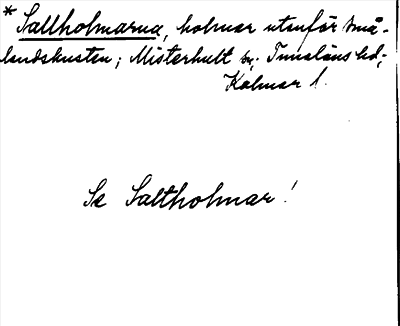 * Sallholmarna, holmar utanför små-
landskusten; Misterhult sn; Tunaläns hd;
Kalmar l.
Se Saltholmar!